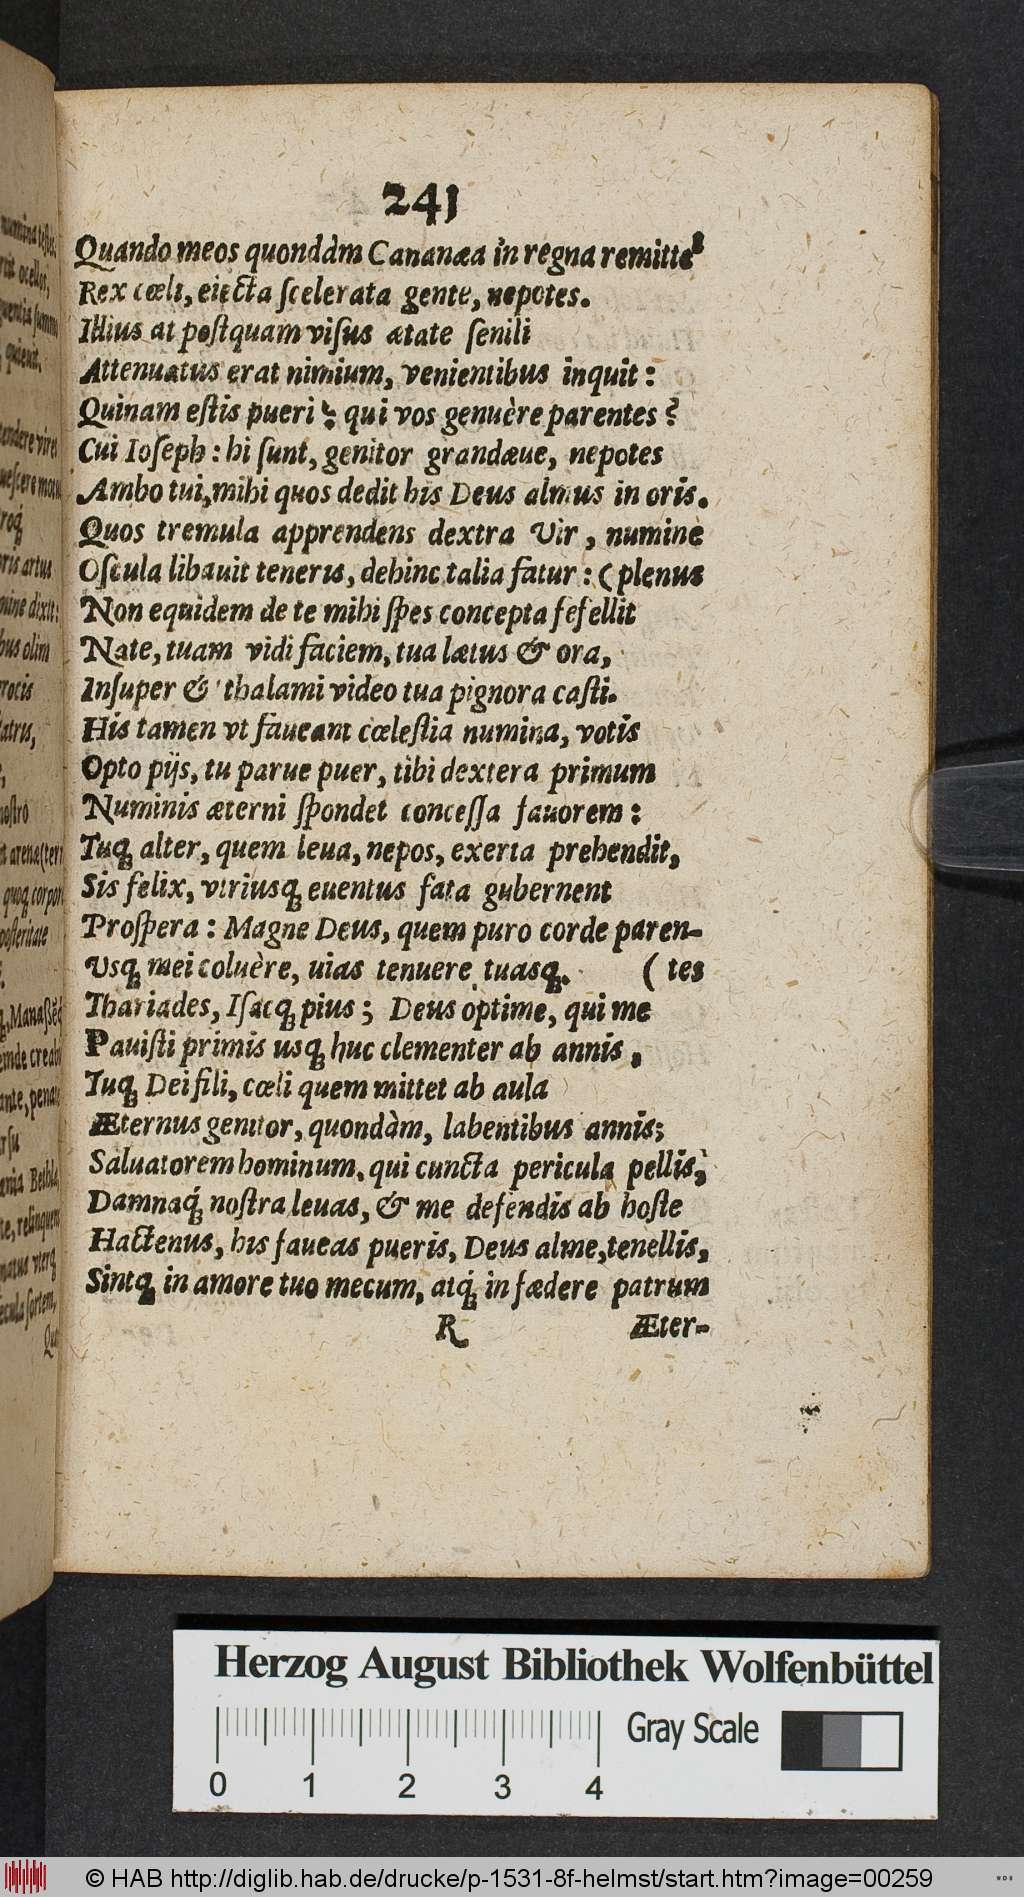 241
Quando meos quondàm Cananæa in regna remittet
Rex cœli, eiecta ſcelerata gente, nepotes.
Illius at poſtquam viſus ætate ſenili
Attenuatus erat nimium, venientibus inquit:
Quinam eſtis pueri? qui vos genuère parentes?
Cui Ioſeph: hi ſunt, genitor grandæue, nepotes
Ambo tui, mihi quos dedit his Deus almus in oris.
Quos tremula apprendens dextra Vir, numine
Oſcula libauit teneris, dehinc talia fatur: (plenus
Non equidem de te mihi ſpes concepta fefellit
Nate, tuam vidi faciem, tua lætus & ora,
Inſuper & thalami video tua pignora caſti.
His tamen vt faueant cœleſtia numina, votis
Opto pijs, tu parue puer, tibi dextera primum
Numinis æterni ſpondet conceſſa fauorem:
Tuq́; alter, quem leua, nepos, exerta prehendit,
Sis felix, vtriusq; euentus fata gubernent
Proſpera: Magne Deus, quem puro corde paren-
Vsq; mei coluère, uias tenuere tuasq;. (tes
Thariades, Iſacq; pius; Deus optime, qui me
Pauiſti primis usq; huc clementer ab annis,
Tuq; Dei fili, cœli quem mittet ab aula
Æternus genitor, quondàm, labentibus annis;
Saluatorem hominum, qui cuncta pericula pellis,
Damnaq́; noſtra leuas, & me defendis ab hoſte
Hactenus, his faueas pueris, Deus alme, tenellis,
Sintq; in amore tuo mecum, atq́; in fædere patrum
R Æter-
numina
ocellos,
quieut.
tendere vires
roq́;
oris artus
dixit:
bus olim
atris,
noſtro
quoq; corpore
poſteritate
Manaſſẽq́;
ante, penates
Que
Herzog August Bibliothek Wolfenbüttel
Gray Scale
0 1 2 3 4
© HAB http://diglib.hab.de/drucke/p-1531-8f-helmst/start.htm?image=00259